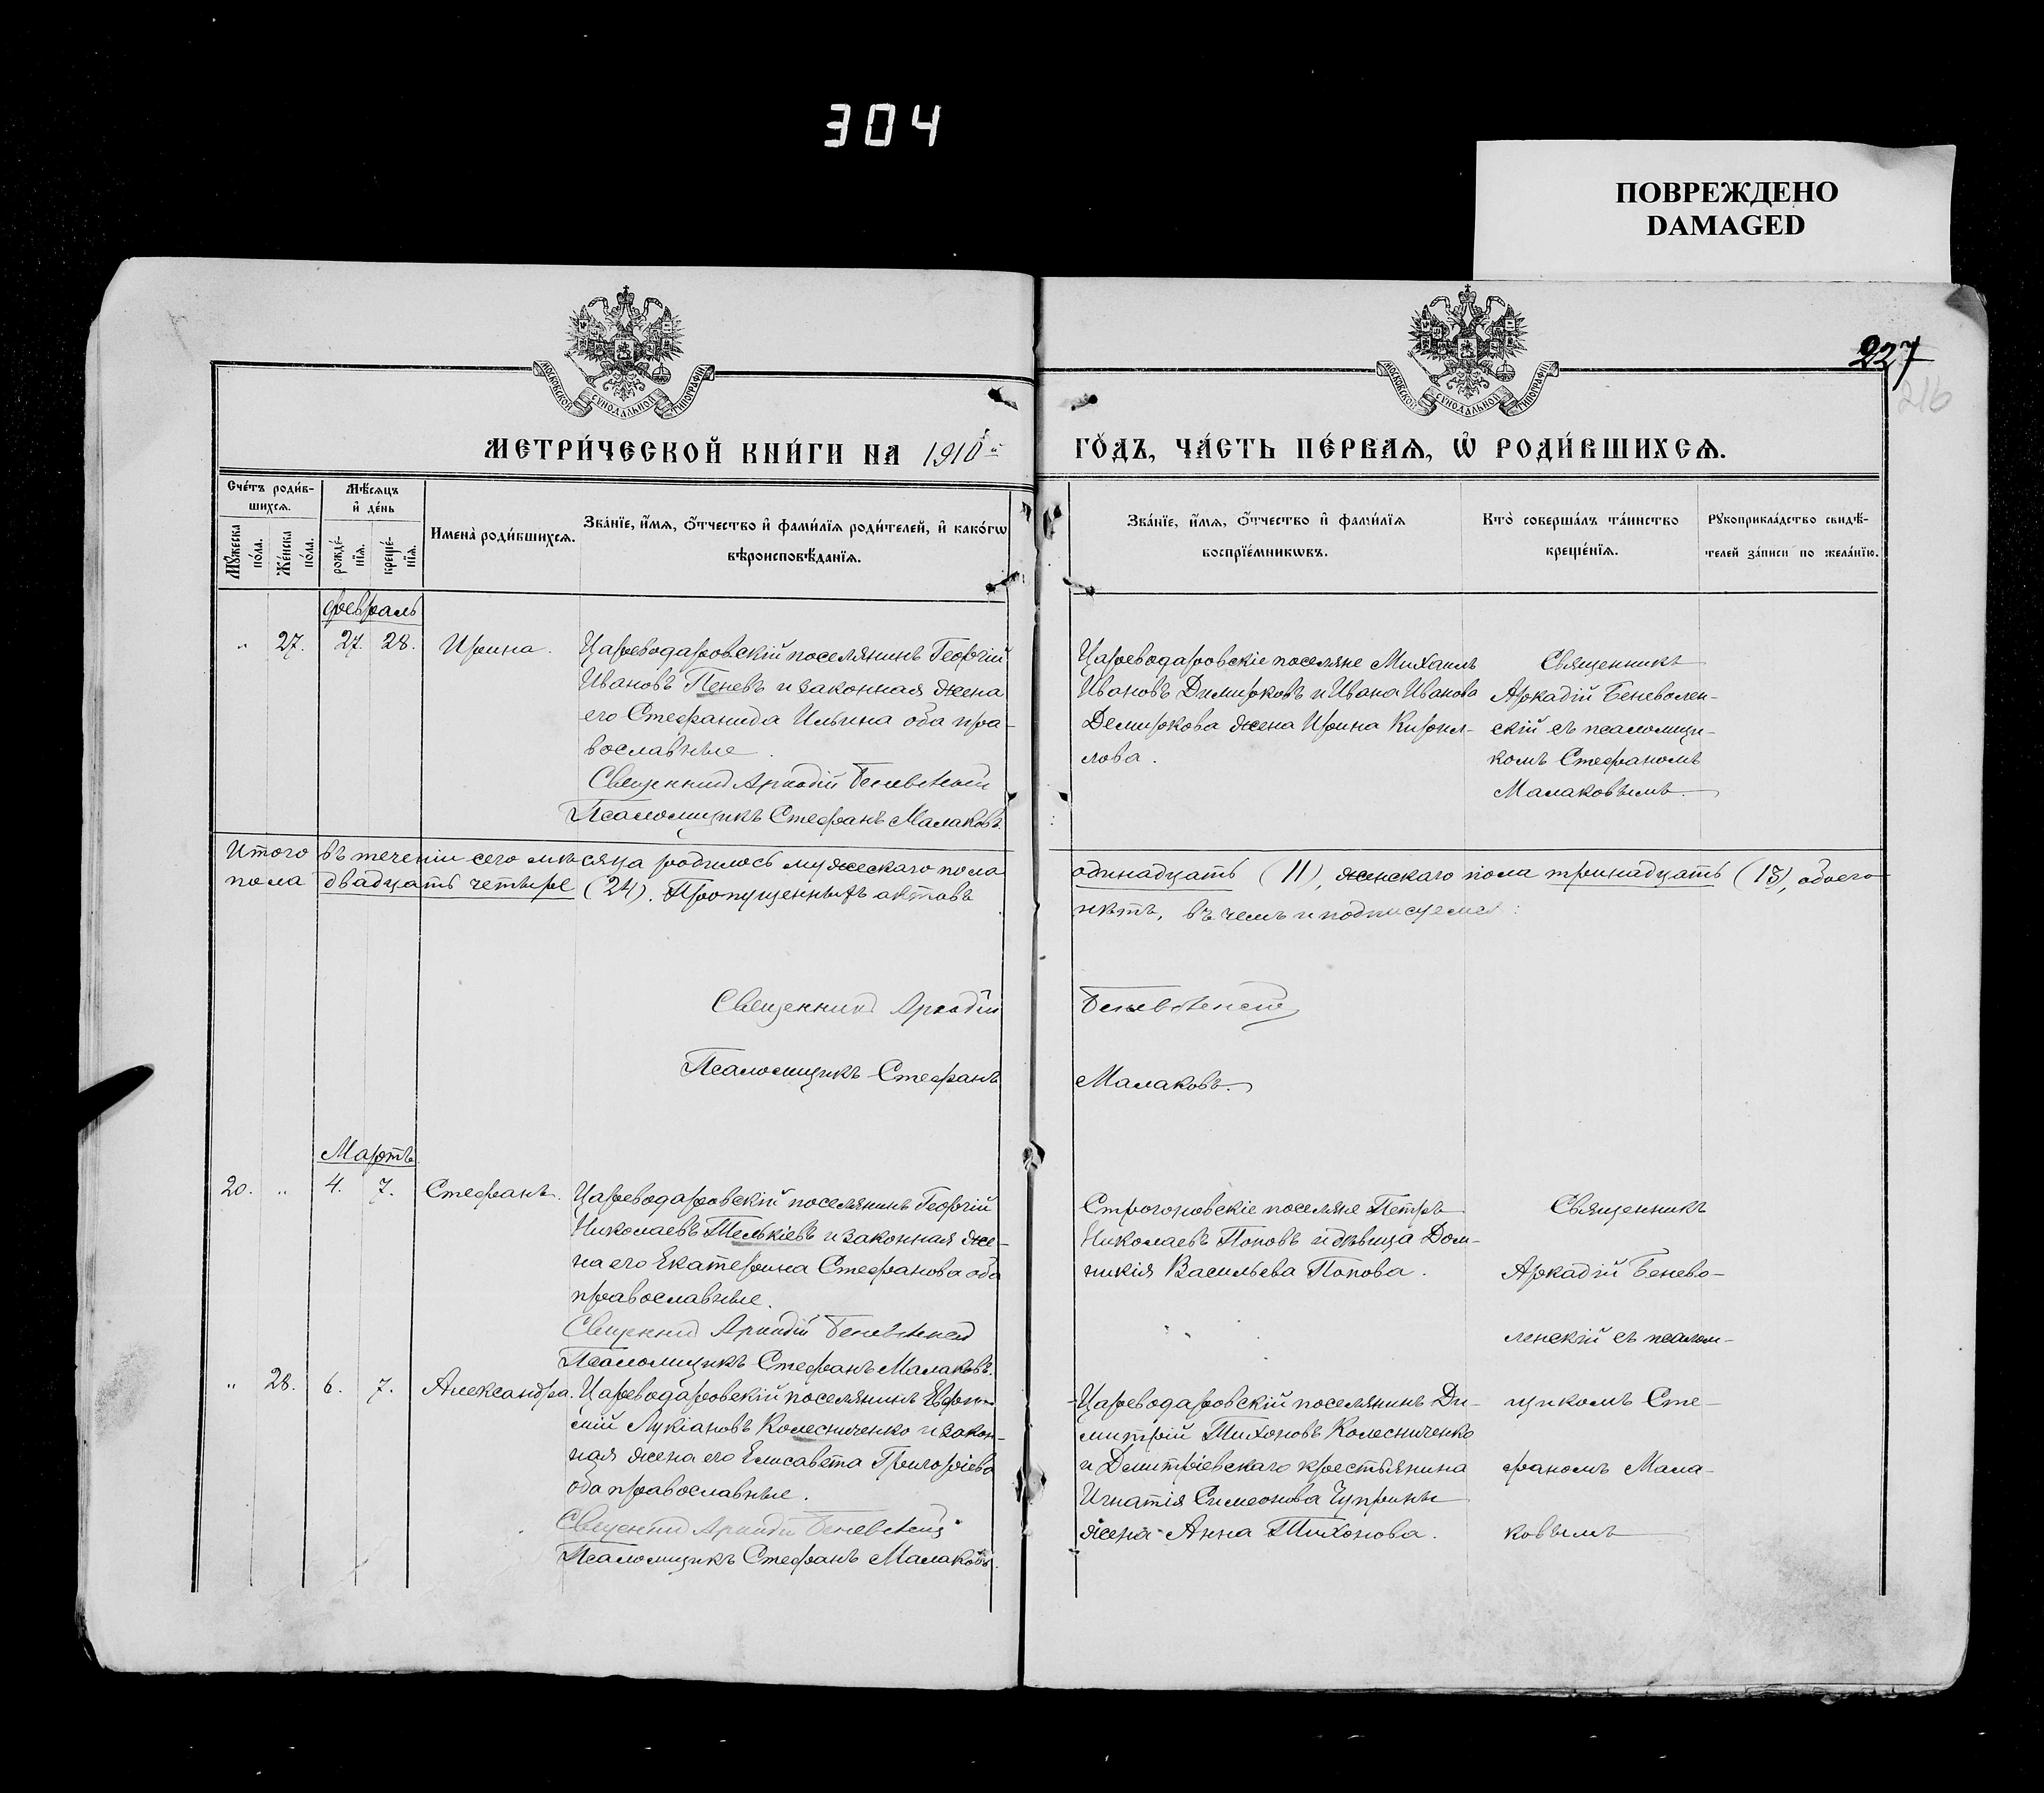 304
ПОВРЕЖДЕНО
DAMAGED
227
216
МОСКОВСКОЙ СѴНОДАЛЬНОЙ ТИПОГРАФІИ
МОСКОВСКОЙ СѴНОДАЛЬНОЙ ТИПОГРАФІИ
МЕТРИ́ЧЕСКОЙ КНИ́ГИ НА 1910й
ГО́ДЪ, ЧА́СТЬ ПЕ́РВАѦ, Ѡ РОДИ́ВШИХСѦ.
Сче́тъ роди́в-
шихсѧ.
Мꙋ́жеска
по́ла.
Же́нска
по́ла.
Мѣ́сѧцъ
и҆ де́нь
рожде́-
нїѧ.
креще́-
нїѧ.
И҆мена̀ роди́вшихсѧ.
Зва́нїе, и҆́мѧ, ѻ҆́тчество и҆ фами́лїѧ роди́телей, и҆ како́гѡ
вѣроисповѣ́данїѧ.
Зва́нїе, и҆́мѧ, ѻ҆́тчество и҆ фами́лїѧ
воспрїе́мникѡвъ.
Кто̀ соверша́лъ та́инство
креще́нїѧ.
Рꙋкоприкла́дство свидѣ́-
телей за́писи по жела́нїю.
февраль
" 27. 27. 28. Ирина.
Цареводаровскій поселянинъ Георгій
Ивановъ Пеневъ и законная жена
его Стефанида Ильина оба пра-
вославные.
Священникъ Аркадій Беневоленскій
Псаломщикъ Стефанъ Малаковъ.
Цареводаровскіе поселяне Михаилъ
Ивановъ Димирковъ и Ивана Иванова
Демиркова жена Ирина Кирил-
лова.
Священникъ
Аркадій Беневолен-
скій съ псаломщи-
комъ Стефаномъ
Малаковымъ.
Итого въ теченіи сего мѣсяца родилось мужескаго пола одинадцать (11), женскаго пола тринадцать (13), обоего
пола двадцать четыре (24). Пропущенныхъ актовъ нѣтъ, въ чемъ и подписуемся:
Священникъ Аркадій Беневоленскій
Псаломщикъ Стефанъ Малаковъ.
Мартъ
20. " 4. 7. Стефанъ.
Цареводаровскій поселянинъ Георгій
Николаевъ Телькіевъ и законная же-
на его Екатерина Стефанова оба
православные.
Священникъ Аркадій Беневоленскій
Псаломщикъ Стефанъ Малаковъ.
Строгоновскіе поселяне Петръ
Николаевъ Поповъ и дѣвица Дом-
никія Васильева Попова.
Священникъ
Аркадій Бенево-
ленскій съ псалом-
" 28. 6. 7. Александра.
Цареводаровскій поселянинъ Евфи-
мій Лукіановъ Колесниченко и закон-
ная жена его Елисавета Григоріева
оба православные.
Священникъ Аркадій Беневоленскій
Псаломщикъ Стефанъ Малаковъ.
Цареводаровскій поселянинъ Ди-
митрій Тихоновъ Колесниченко
и Димитріевскаго крестьянина
Игнатія Симеонова Чуприны
жена Анна Тихонова.
щикомъ Сте-
фаномъ Мала-
ковымъ